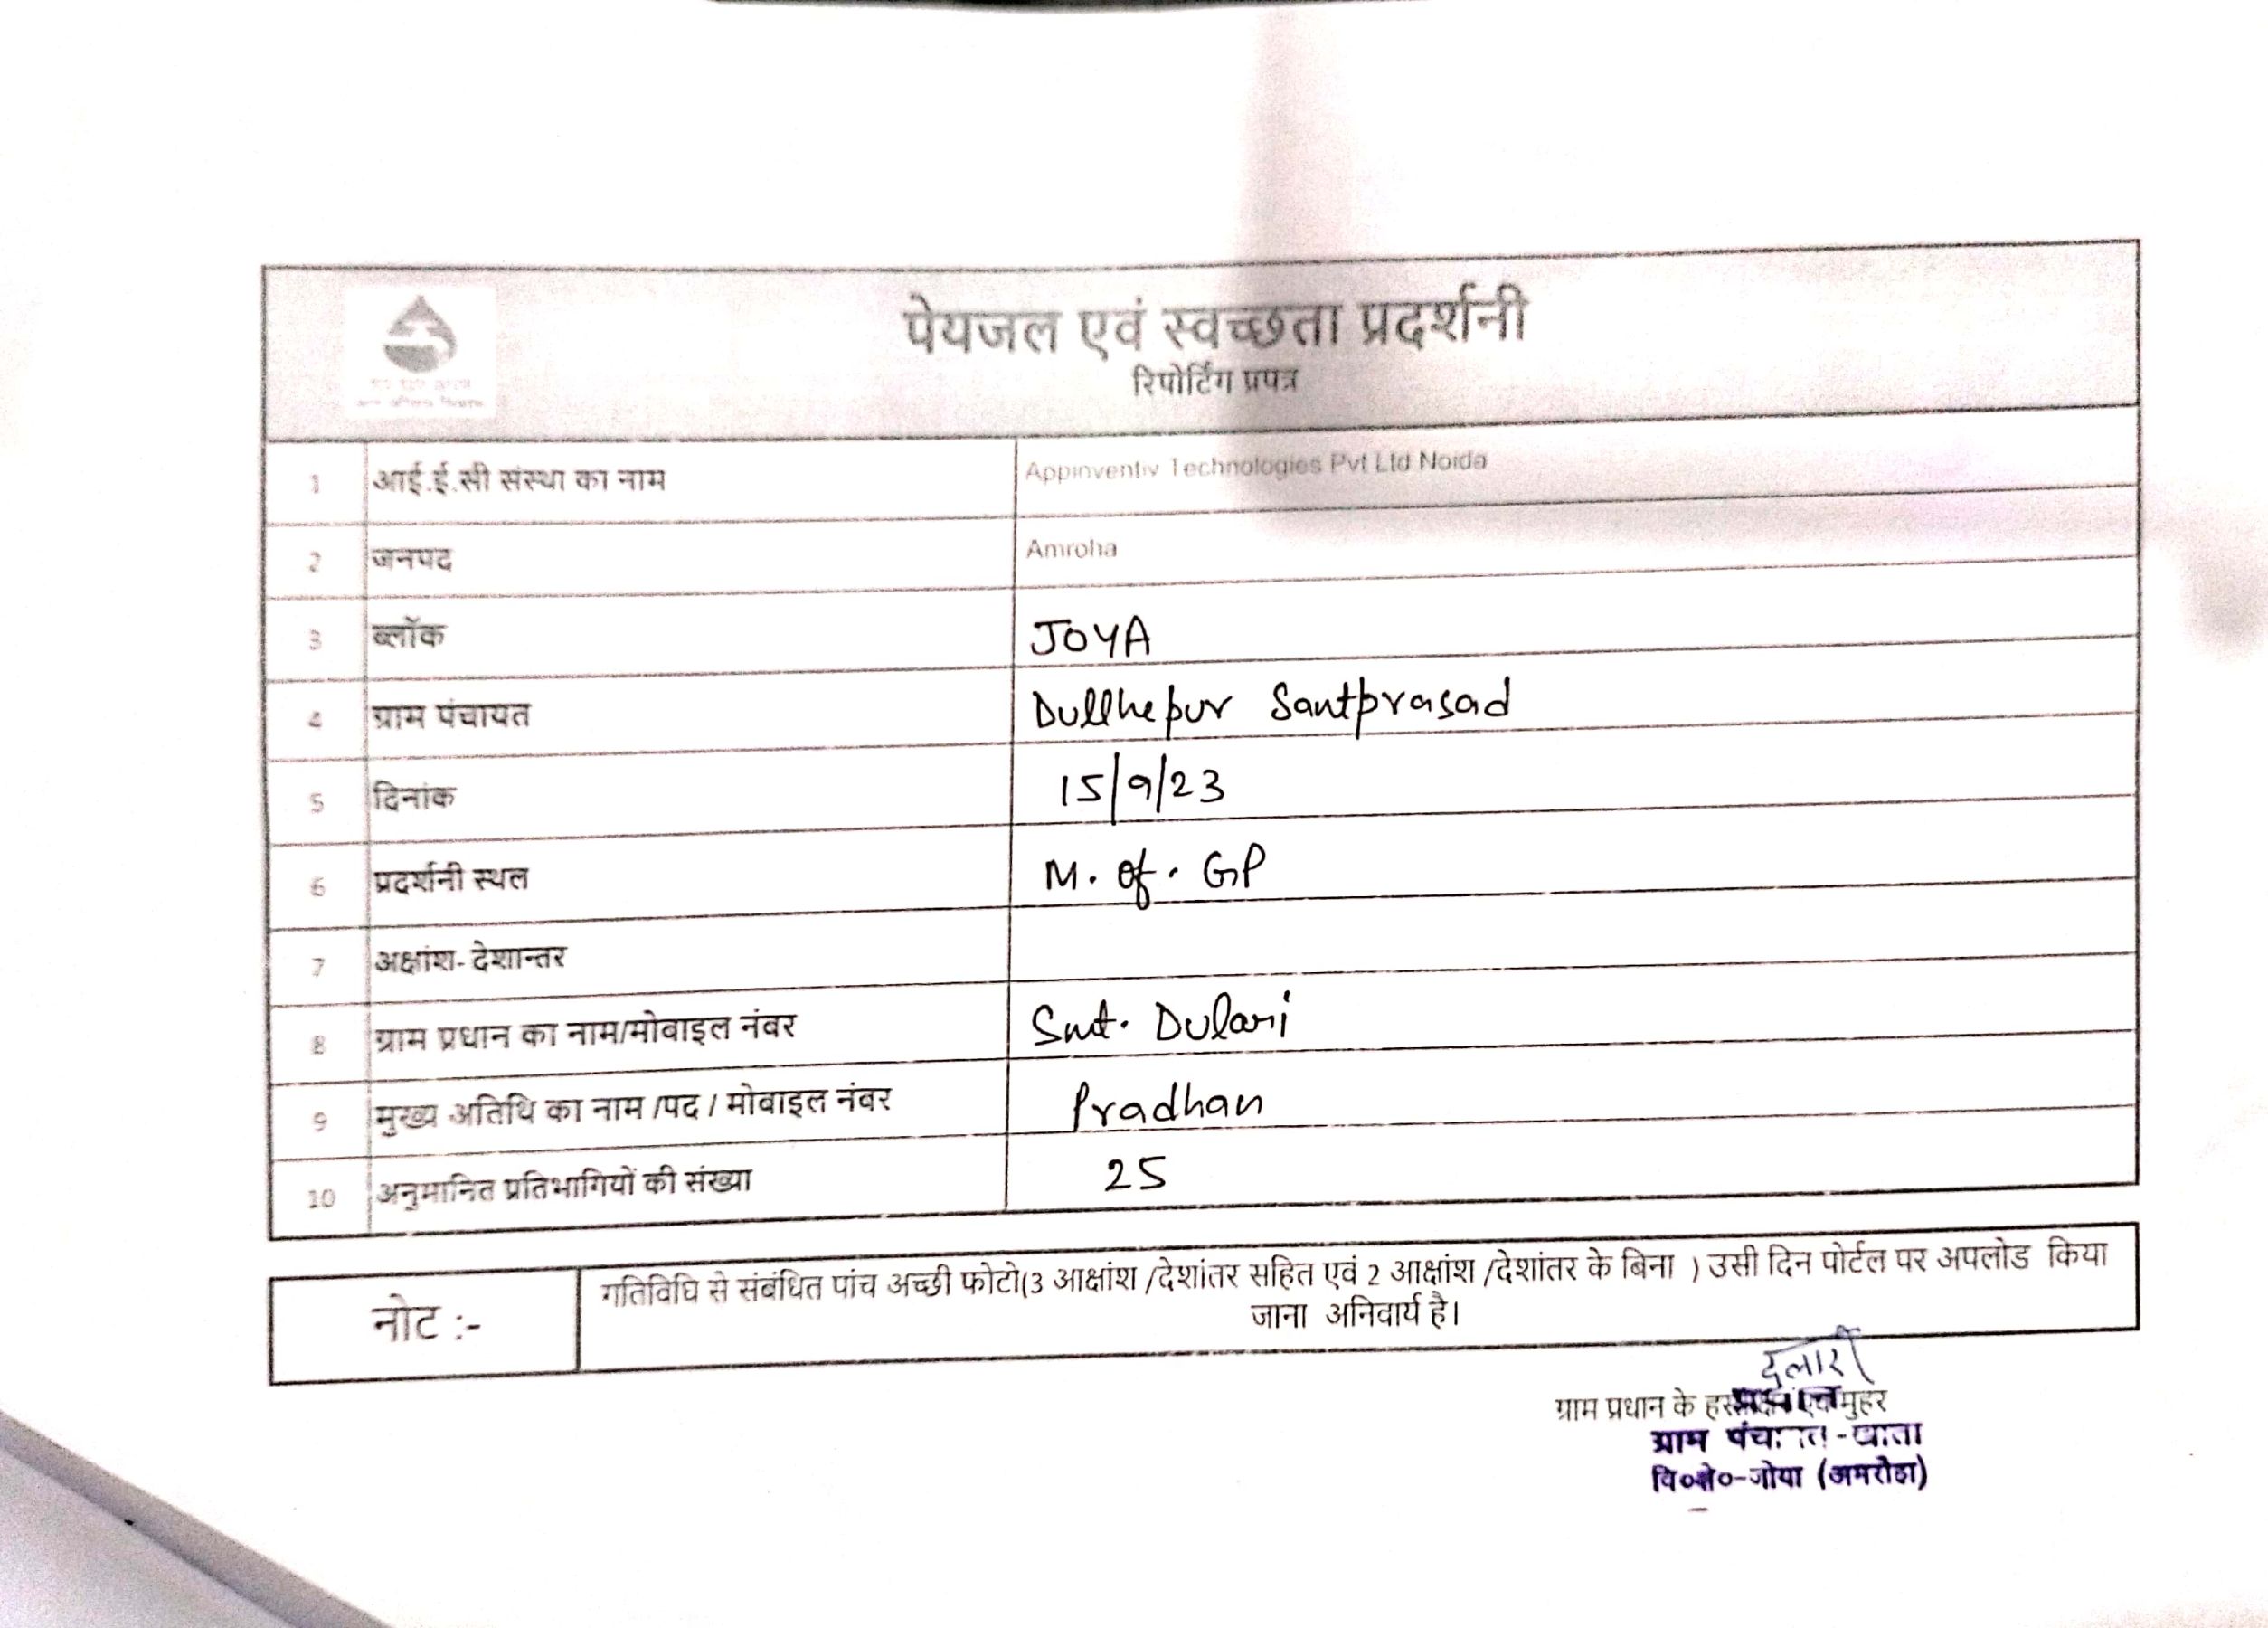 पेयजल एवं स्वच्छता प्रदर्शनी
रिपोर्टिंग प्रपत्र
1 आई.ई.सी संस्था का नाम Appinventiv Technologies Pvt Ltd Noida
2 जनपद Amroha
3 ब्लॉक JOYA
4 ग्राम पंचायत Dullhepur Santprasad
5 दिनांक 15/9/23
6 प्रदर्शनी स्थल M. of. GP
7 अक्षांश- देशान्तर
8 ग्राम प्रधान का नाम/मोबाइल नंबर Smt. Dulari
9 मुख्य अतिथि का नाम /पद / मोबाइल नंबर Pradhan
10 अनुमानित प्रतिभागियों की संख्या 25
नोट :- गतिविधि से संबंधित पांच अच्छी फोटो(3 आक्षांश /देशांतर सहित एवं 2 आक्षांश /देशांतर के बिना ) उसी दिन पोर्टल पर अपलोड किया
जाना अनिवार्य है।
दुलारी
ग्राम प्रधान के हस्ताक्षर एवं मुहर
ग्राम पंचायत
वि०क्षे०-जोया (अमरोहा)